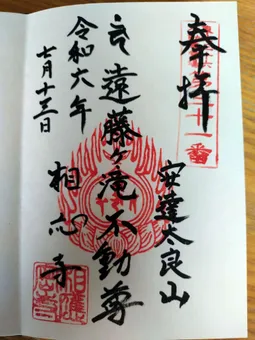 奉拝
安達太良山
遠藤ヶ滝不動尊
相応寺
令和六年
七月十三日